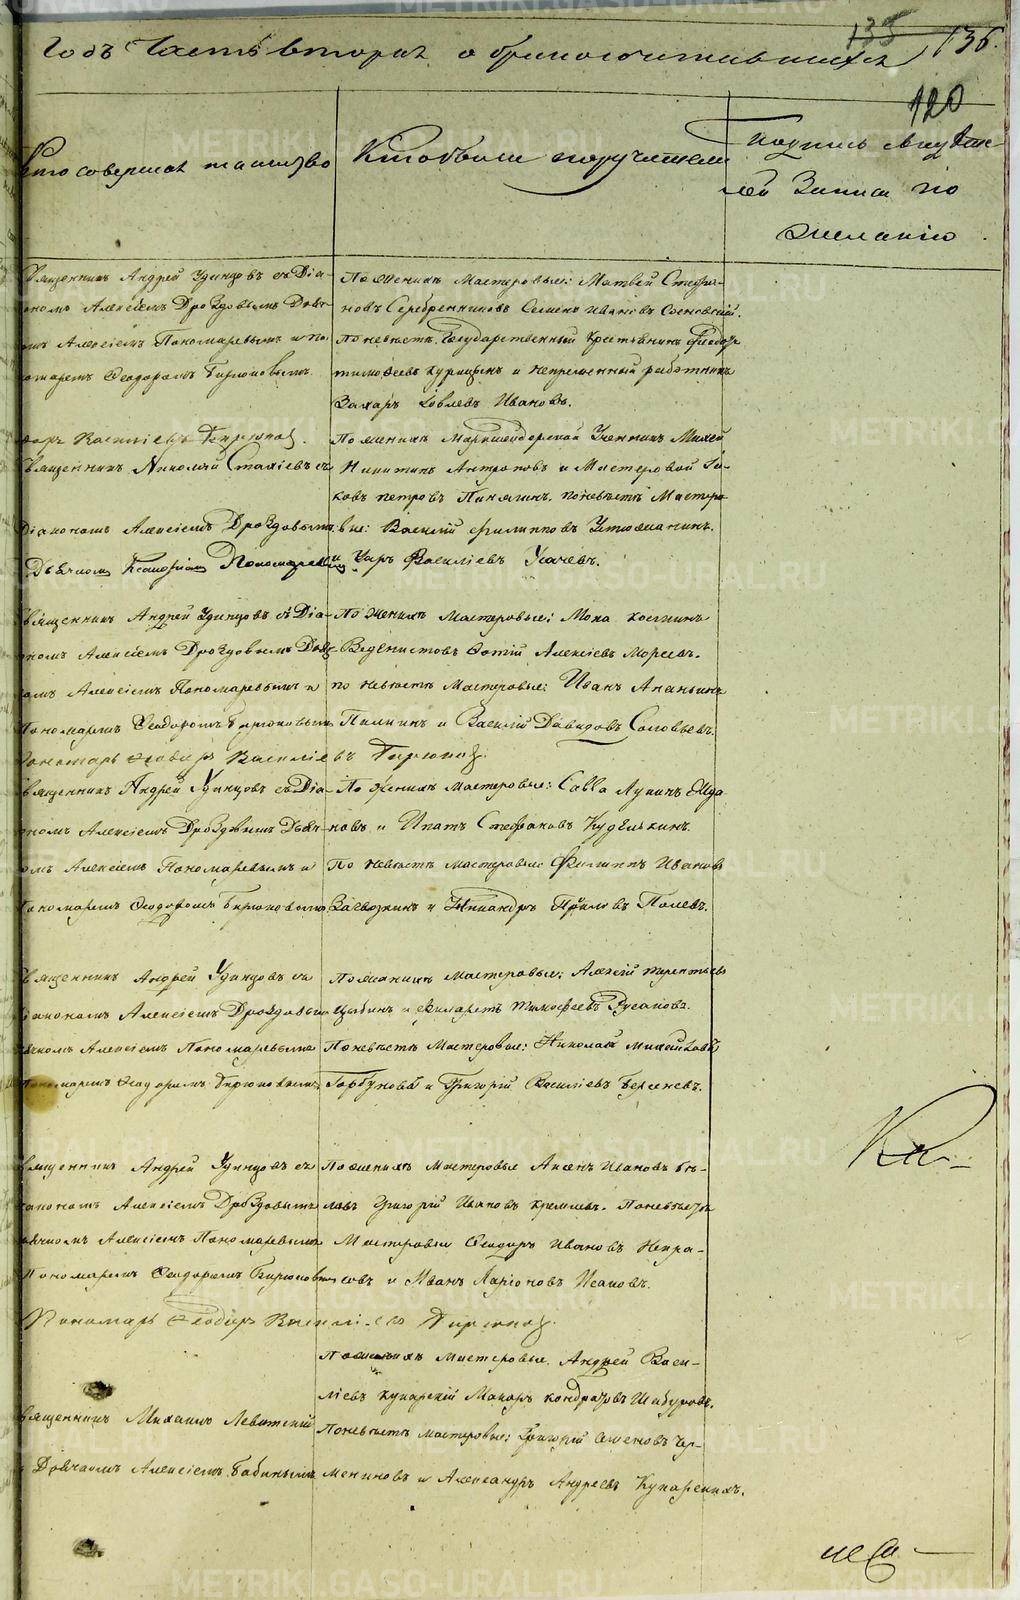 Годъ Часть вторая о бракосочитавшихся 135 136.
120
Кто совершал таинство
Кто были поручители
Подпись свидѣте-
лей Записи по
желанію
Священникъ Андрей Удинцовъ съ Діа-
кономъ Алексіемъ Дроздовымъ Дьяч-
комъ Алексіемъ Пономаревымъ и по-
номаремъ Феодоромъ Бирюковымъ.
По женихѣ Мастеровые: Матвей Стефа-
новъ Серебренниковъ Семенъ Ивановъ Сосновский.
По невѣстѣ Государственный Крестьянинъ Феодоръ
Тимофеевъ Курицынъ и непременный работникъ
Захаръ Іовлевъ Ивановъ.
Василіевъ Бирюковъ.
Священникъ Николай Стахіевъ съ
Діакономъ Алексіемъ Дроздовымъ
Дьячкомъ Пономаревымъ
По женихѣ Маркшейдерской Ученикъ Михей
Никитинъ Антроповъ и Мастеровой Іа-
ковъ Петровъ Пинягинъ. По невѣстѣ Мастеро-
вые: Василій Филипповъ Устюжанинъ.
и Уаръ Василіевъ Усачевъ.
Священникъ Андрей Удинцовъ съ Діа-
кономъ Алексіемъ Дроздовымъ Дьяч-
комъ Алексіемъ Пономаревымъ и
Пономаремъ Феодоромъ Бирюковымъ
Пономарь Феодоръ Василіевъ Бирюковъ.
По женихѣ Мастеровые: Мока Костинъ
Веденистовъ Фотій Алексіевъ Мореевъ.
по невѣстѣ Мастеровые: Иванъ Ананьинъ
Пилнинъ и Василій Давидовъ Соловьевъ.
Священникъ Андрей Удинцовъ съ Діа-
кономъ Алексіемъ Дроздовымъ Дьяч-
комъ Алексіемъ Пономаревымъ и
Пономаремъ Феодоромъ Бирюковымъ
По женихѣ Мастеровые: Савва Лукинъ Жда-
новъ и Ипатъ Стефановъ Кудѣлькинъ.
По невѣстѣ Мастеровые Филиппъ Ивановъ
Загвозкинъ и Никандръ Полевъ.
Священникъ Андрей Удинцовъ съ
Діакономъ Алексіемъ Дроздовымъ
Дьячкомъ Алексіемъ Пономаревымъ
Пономаремъ Феодоромъ Бирюковымъ
По женихѣ Мастеровые: Алексій Терентьевъ
Цыбинъ и Филаретъ Тимофеевъ Русановъ.
По невѣстѣ Мастеровые: Николай Михайловъ
Горбуновъ и Григорій Василіевъ Берсеневъ.
Священникъ Андрей Удинцовъ съ
Діакономъ Алексіемъ Дроздовымъ
Дьячкомъ Алексіемъ Пономаревымъ
Пономаремъ Феодоромъ Бирюковымъ
Пономарь Феодоръ Василіевъ Бирюковъ.
По женихѣ Мастеровые Аксенъ Ивановъ Бѣ-
ловъ Григорій Ивановъ Кремлевъ. По невѣстѣ
Мастеровые Феодоръ Ивановъ Некра-
совъ и Иванъ Ларіоновъ Исаковъ.
Священникъ Михаилъ Левитскій
Дьячкомъ Алексіемъ Бабинымъ
По женихѣ Мастеровые. Андрей Васи-
ліевъ Кунарскій Макаръ Кондратовъ Шабуровъ.
По невѣстѣ мастеровые: Григорій Семеновъ Чер-
мениновъ и Александръ Андреевъ Кунарскихъ.